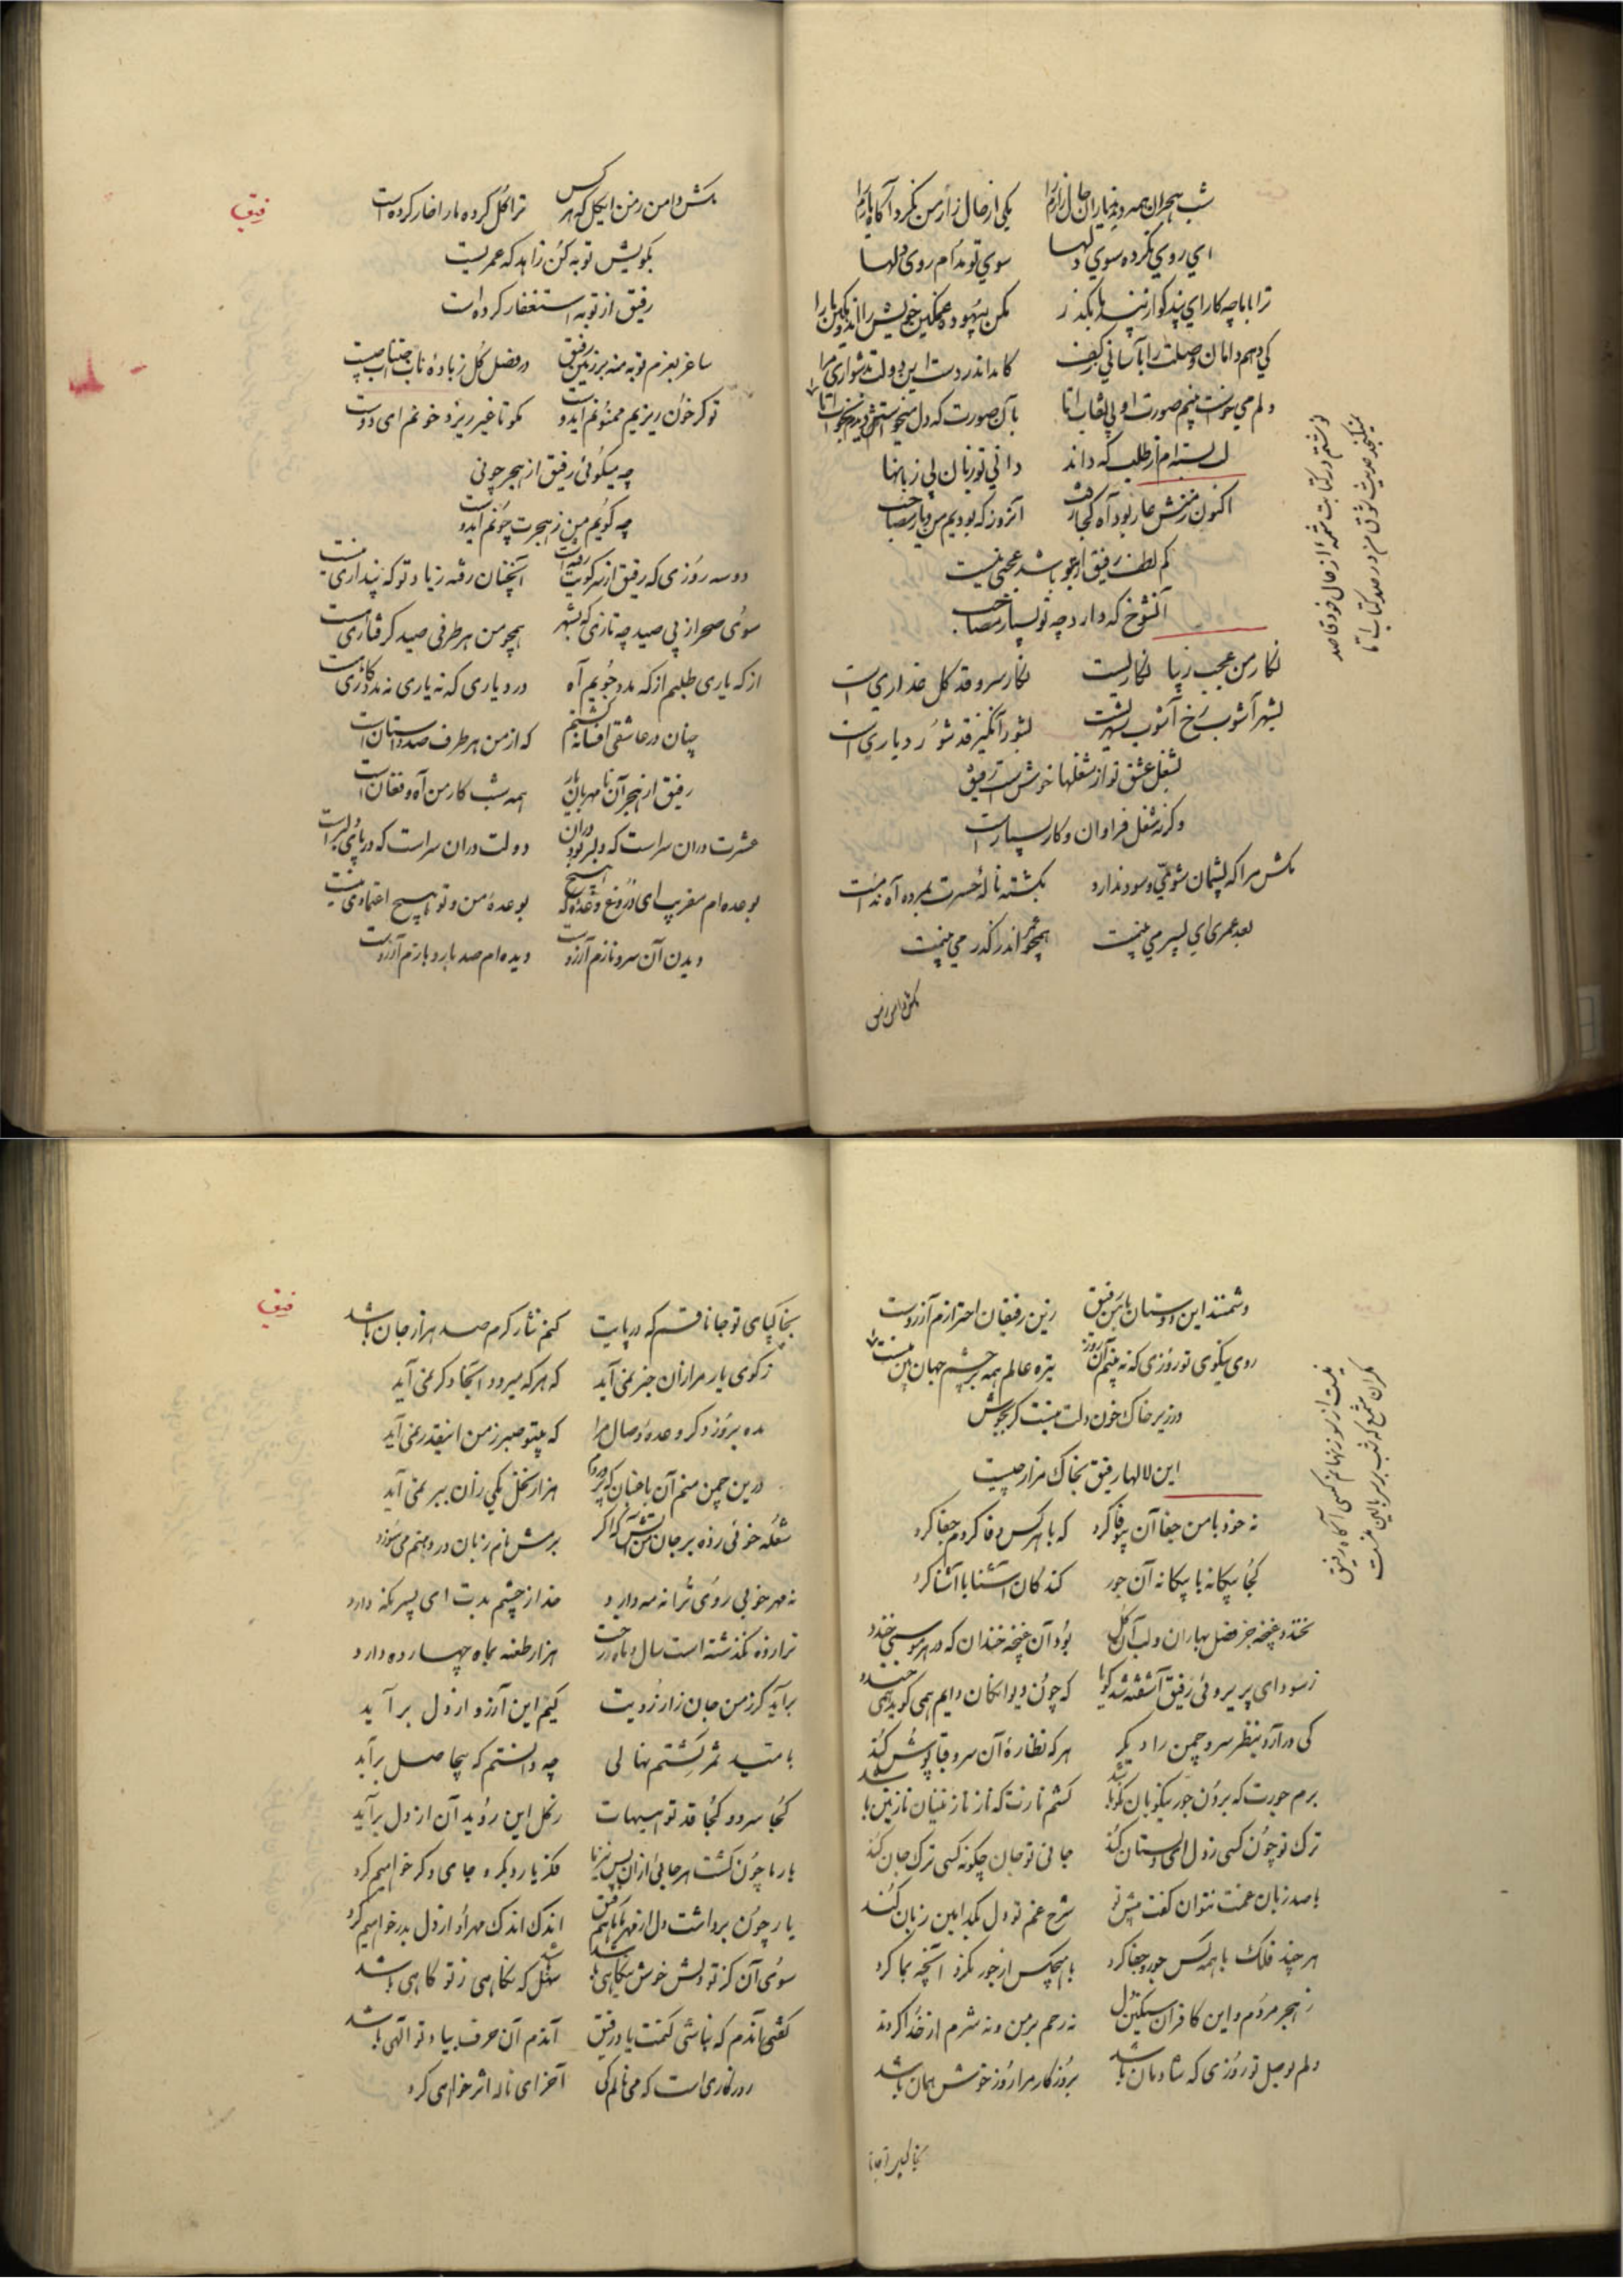 شب هجران همه دیدند یاران حال زارم را یکی از حال زار من نکرد آگاه یارم را
ای روی نکرده سوی دلها سوی تو مدام روی دلها
ترا با ما چه کار ای پندگو از پند ما بگذر مکن بیهوده غمگین خویش را اندوهگین ما را
کی دهم دامان وصلت را بآسانی ز کف کامد اندر دست این دولت بدشواری مرا
دلم می خواست بینم صورت او بی نقاب اما بآن صورت که دل میخواستش دیدم بخواب اما
لب بسته ام از طلب که داند دانی تو زبان بی زبانها
اکنون ز منش عار بود آه کجا رفت آنروز که بودیم من و یار مصاحب
کم لطف رفیق ار بتو باشد عجبی نیست
آنشوخ که دارد چو تو بسیار مصاحب
نوشتم در کتابت شمه از حال خود قاصد
نمیگنجد حدیث شوق من در صد کتاب اما
نگار من عجب زیبا نگاریست نگار سرو قد گل عذاری است
بشهر آشوب رخ آشوب شهریست بشور انگیز قد شور دیاری است
بشغل عشق تو از شغلها خوش است رفیق
وگرنه شغل فراوان و کار بسیار است
مکش مرا که پشیمان شوی و سود ندارد بکشته ناله حسرت بمرده آه ندامت
بعد عمری ای پسر می بینمت همچو عمر اندر گذر می بینمت
بکش دامن ز من
رفیق
بکش دامن ز من ای گل که هر کس ترا گل کرده ما را خار کرده است
بگویش توبه کن زاهد که عمریست
رفیق از توبه استغفار کرده است
ساغر بعزم توبه منه بر زمین رفیق در فصل گل ز باده ناب اجتناب چیست
تو گر خون ریزیم ممنونم ای دوست مگو تا غیر ریزد خونم ای دوست
چه میگوئی رفیق از هجر چونی
چه گویم من ز هجرت چونم ای دوست
دو سه روزی که رفیق از سر کویت رفته است آنچنان رفته ز یاد تو که پنداری نیست
سوی صحرا ز پی صید چه تازی که بشهر همچو من هر طرفی صید گرفتاری هست
از که یاری طلبم از که مدد جویم آه در دیاری که نه یاری نه مددکاری هست
چنان در عاشقی افسانه گشتم که از من هر طرف صد داستان است
رفیق از هجر آن نامهربان یار همه شب کار من آه و فغان است
عشرت دران سراست که دلبر بود دران دولت دران سر است که در پای دلبر است
بوعده ام مفریب ای دروغ وعده که هیچ بوعده من و تو هیچ اعتمادی نیست
دیدن آن سرو نازم آرزوست دیده ام صد بار و بازم آرزوست
دشمنند این دوستان با من رفیق زین رفیقان احترازم آرزوست
روی نیکوی تو روزی که نه بینم آن روز تیره عالم همه بر چشم جهان بین منست
در زیر خاک خون دلت نیست گر بجوش
این لالها رفیق بخاک مزار چیست
نیست از سوز نهانم کسی آگاه رفیق
مگر آن شمع که شب بر سر بالین منست
نه خود با من جفا آن بیوفا کرد که با هر کس وفا کردم جفا کرد
کجا بیگانه با بیگانه آن جور کند کان آشنا با آشنا کرد
نخندد غنچه جز فصل بهاران و لب آن گل بود آن غنچه خندان که در هر موسمی خندد
ز سودای پریروئی رفیق آشفته شد گویا که چون دیوانگان دایم همی گرید همی خندد
کی در آرد بنظر سرو چمن را دیگر هر که نظاره آن سرو قباپوش کند
برم جورت که بردن جور نیکویان نکو باشد کشم نازت که ناز نازنینان نازنین باشد
ترک تو چون کسی ز دل ای دلستان کند جانی تو جان چگونه کسی ترک جان کند
با صد زبان غمت نتوان گفت پیش تو شرح غم تو دل بکدامین زبان کند
هر چند فلک با همه کس جور و جفا کرد با هیچکس از جور نکرد آنچه بما کرد
ز هجر مردم و این کافران سنگین دل نه رحم بر من و نه شرم از خدا کردند
دلم بوصل تو روزی که شادمان باشد بروزگار مرا روز خوش همان باشد
بخاکپای تو جانا
رفیق
بخاکپای تو جانا قسم که در پایت کنم نثار گرم صد هزار جان باشد
ز کوی یار مرا زان خبر نمی آید که هر که میرود آنجا دگر نمی آید
مده بروز دگر وعده وصال مرا که بیتو صبر ز من اینقدر نمی آید
درین چمن منم آن باغبان که پروردم هزار نخل یکی زان ببر نمی آید
شعله خوئی زده بر جان من آتش که اگر برمش نام زبان در دهنم می سوزد
نه مهر خوبی روی ترا نه مه دارد خدا ز چشم بدت ای پسر نگه دارد
برآید گر ز من جان زار زویت کیم این آرزو از دل بر آید
بامید ثمر کشتم نهالی چه دانستم که بیحاصل برآید
کجا سرو و کجا قد تو هیهات ز گل این روید آن از دل برآید
یار ما چون گشت هر جائی ازان پس نیز ما فکر یار دیگر و جای دگر خواهیم کرد
یار چون برداشت دل از مهر ما ما هم رفیق اندک اندک مهر او از دل بدر خواهیم کرد
سوی آن کز تو دلش خوش بنگاهی باشد سهل که نگاهی ز تو گاهی باشد
گفتی آندم که نباشی کنمت یاد رفیق آندم آن حرف بیاد تو الهی باشد
روزگاری است که می نالم کی آخر ای ناله اثر خواهی کرد